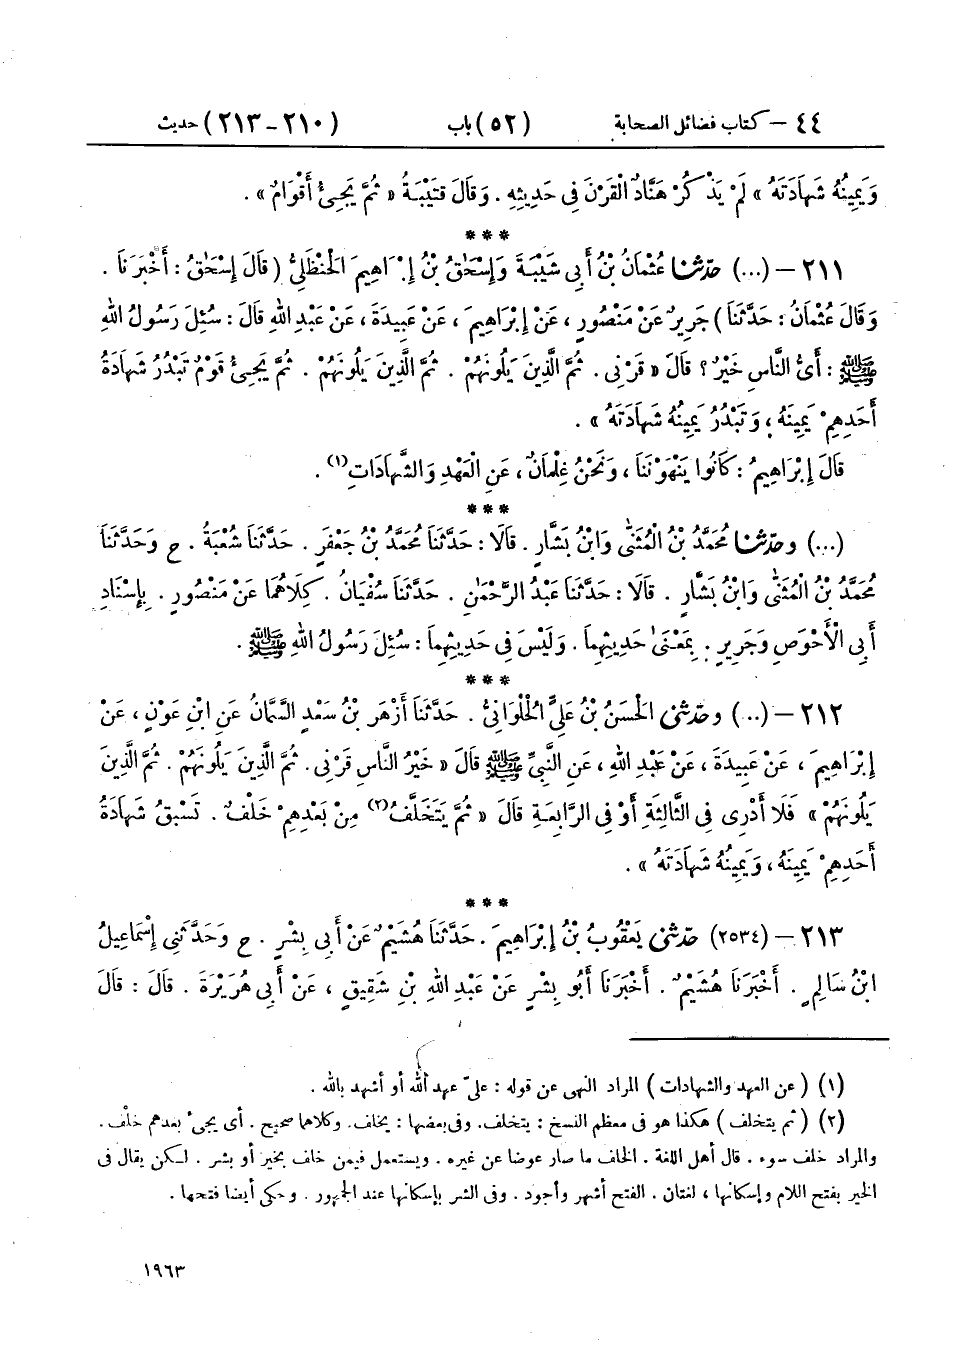 ٤٤ – كتاب فضائل الصحابة (٥٢) باب (٢١٠ – ٢١٣) حديث
وَيَمِينُهُ شَهَادَتَهُ » لَمْ يَذْكُرْ هَنَّادٌ الْقَرْنَ فِي حَدِيثِهِ . وَقَالَ قُتَيْبَةُ « ثُمَّ يَجِيءُ أَقْوَامٌ » .
***
٢١١ – (...) حدّثنا عُثْمَانُ بْنُ أَبِي شَيْبَةَ وَإِسْحَاقُ بْنُ إِبْرَاهِيمَ الْحَنْظَلِيُّ ( قَالَ إِسْحَاقُ : أَخْبَرَنَا .
وَقَالَ عُثْمَانُ : حَدَّثَنَا ) جَرِيرٌ عَنْ مَنْصُورٍ ، عَنْ إِبْرَاهِيمَ ، عَنْ عَبِيدَةَ ، عَنْ عَبْدِ اللهِ قَالَ : سُئِلَ رَسُولُ اللهِ
ﷺ : أَيُّ النَّاسِ خَيْرٌ ؟ قَالَ « قَرْنِي . ثُمَّ الَّذِينَ يَلُونَهُمْ . ثُمَّ الَّذِينَ يَلُونَهُمْ . ثُمَّ يَجِيءُ قَوْمٌ تَبْدُرُ شَهَادَةُ
أَحَدِهِمْ يَمِينَهُ ، وَتَبْدُرُ يَمِينُهُ شَهَادَتَهُ » .
قَالَ إِبْرَاهِيمُ : كَانُوا يَنْهَوْنَنَا ، وَنَحْنُ غِلْمَانٌ ، عَنِ الْعَهْدِ وَالشَّهَادَاتِ(١) .
***
(...) وحدّثنا مُحَمَّدُ بْنُ الْمُثَنَّى وَابْنُ بَشَّارٍ . قَالَا : حَدَّثَنَا مُحَمَّدُ بْنُ جَعْفَرٍ . حَدَّثَنَا شُعْبَةُ . ح وَحَدَّثَنَا
مُحَمَّدُ بْنُ الْمُثَنَّى وَابْنُ بَشَّارٍ . قَالَا : حَدَّثَنَا عَبْدُ الرَّحْمَنِ . حَدَّثَنَا سُفْيَانُ . كِلَاهُمَا عَنْ مَنْصُورٍ . بِإِسْنَادِ
أَبِي الْأَحْوَصِ وَجَرِيرٍ . بِمَعْنَى حَدِيثِهِمَا . وَلَيْسَ فِي حَدِيثِهِمَا : سُئِلَ رَسُولُ اللهِ ﷺ .
***
٢١٢ – (...) وحدّثني الْحَسَنُ بْنُ عَلِيٍّ الْحُلْوَانِيُّ . حَدَّثَنَا أَزْهَرُ بْنُ سَعْدٍ السَّمَّانُ عَنِ ابْنِ عَوْنٍ ، عَنْ
إِبْرَاهِيمَ ، عَنْ عَبِيدَةَ ، عَنْ عَبْدِ اللهِ ، عَنِ النَّبِيِّ ﷺ قَالَ « خَيْرُ النَّاسِ قَرْنِي . ثُمَّ الَّذِينَ يَلُونَهُمْ . ثُمَّ الَّذِينَ
يَلُونَهُمْ » فَلَا أَدْرِي فِي الثَّالِثَةِ أَوْ فِي الرَّابِعَةِ قَالَ « ثُمَّ يَتَخَلَّفُ(٢) مِنْ بَعْدِهِمْ خَلْفٌ . تَسْبِقُ شَهَادَةُ
أَحَدِهِمْ يَمِينَهُ ، وَيَمِينُهُ شَهَادَتَهُ » .
***
٢١٣ – (٢٥٣٤) حدّثني يَعْقُوبُ بْنُ إِبْرَاهِيمَ . حَدَّثَنَا هُشَيْمٌ عَنْ أَبِي بِشْرٍ . ح وَحَدَّثَنِي إِسْمَاعِيلُ
ابْنُ سَالِمٍ . أَخْبَرَنَا هُشَيْمٌ . أَخْبَرَنَا أَبُو بِشْرٍ عَنْ عَبْدِ اللهِ بْنِ شَقِيقٍ ، عَنْ أَبِي هُرَيْرَةَ . قَالَ : قَالَ
(١) ( عن العهد والشهادات ) المراد النهي عن قوله : عليّ عهد الله أو أشهد بالله .
(٢) ( ثم يتخلف ) هكذا هو في معظم النسخ : يتخلف. وفي بعضها : يخلف. وكلاهما صحيح . أي يجيء بعدهم خلْف .
والمراد خلف سوء . قال أهل اللغة . الخلف ما صار عوضا عن غيره . ويستعمل فيمن خلف بخير أو بشر . لكن يقال في
الخير بفتح اللام وإسكانها ، لغتان . الفتح أشهر وأجود . وفي الشر بإسكانها عند الجمهور . وحكى أيضا فتحها .
١٩٦٣